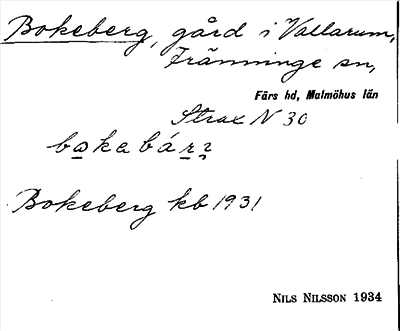 Bokeberg, gård i Vallarum,
Främninge sn,
Färs hd, Malmöhus län
Strax N 30
bokabár
Bokeberg kb 1931
NILS NILSSON 1934